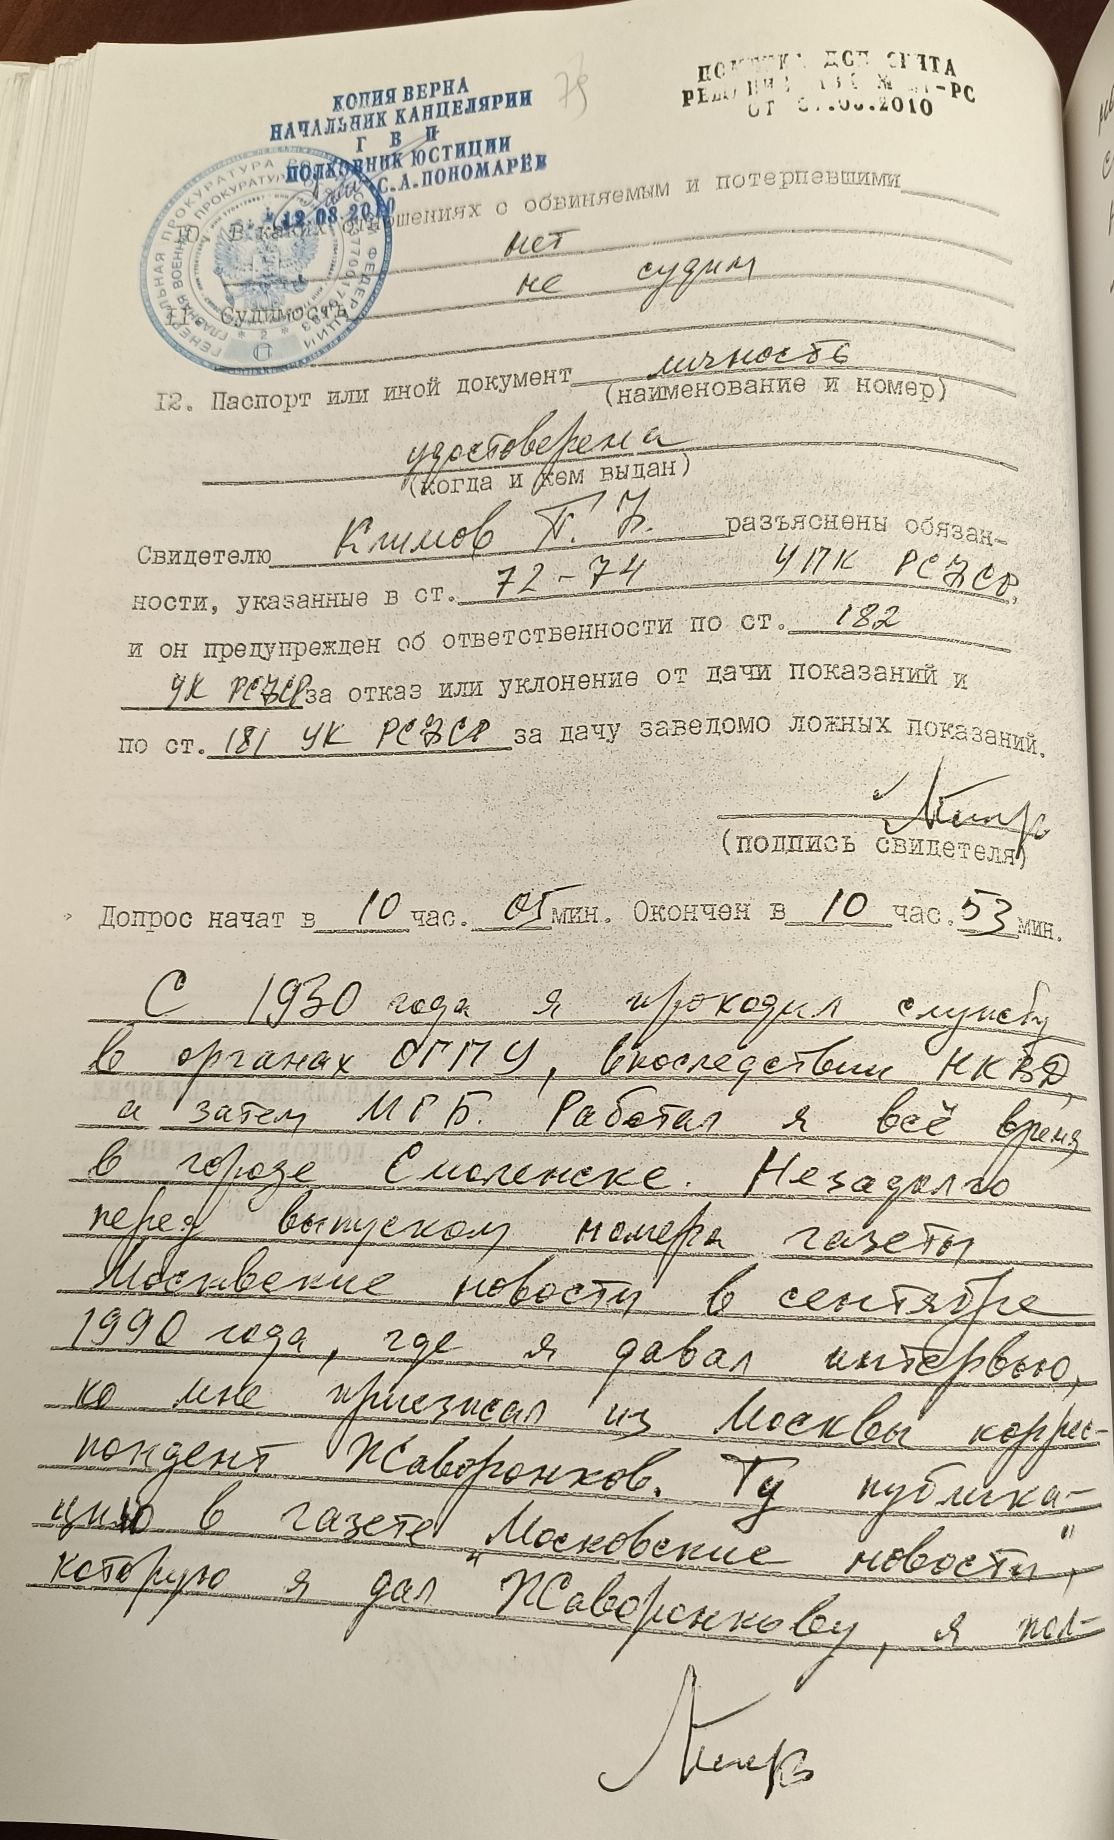 КОПИЯ ВЕРНА
НАЧАЛЬНИК КАНЦЕЛЯРИИ
Г В П
ПОЛКОВНИК ЮСТИЦИИ
С.А.ПОНОМАРЁВ
12.08.2010
ПОМЕТКА ДСП СНЯТА
ОТ .2010
10. В каких отношениях с обвиняемым и потерпевшими
нет
11. Судимость не судим
12. Паспорт или иной документ личность
(наименование и номер)
удостоверена
(когда и кем выдан)
Свидетелю Климов П. Б. разъяснены обязан-
ности, указанные в ст. 72-74 УПК РСФСР,
и он предупрежден об ответственности по ст. 182
УК РСФСР за отказ или уклонение от дачи показаний и
по ст. 181 УК РСФСР за дачу заведомо ложных показаний.
(подпись свидетеля)
Допрос начат в 10 час. 05 мин. Окончен в 10 час. 53 мин.
С 1930 года я проходил службу
в органах ОГПУ, впоследствии НКВД,
а затем МГБ. Работал я всё время
в городе Смоленске. Незадолго
перед выпуском номера газеты
Московские новости в сентябре
1990 года, где я давал интервью,
ко мне приезжал из Москвы коррес-
пондент Жаворонков. Ту публика-
цию в газете „Московские новости",
которую я дал Жаворонкову, я пол-